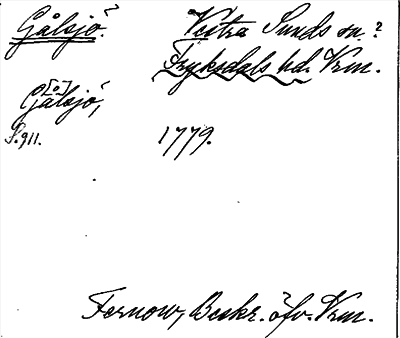 Gålsjö. Västra Sunds sn.?
Fryksdals hd. Vrm.
G[å]lsjö,
S. 911. 1779.
Fernow, Beskr. öfv. Vrm.